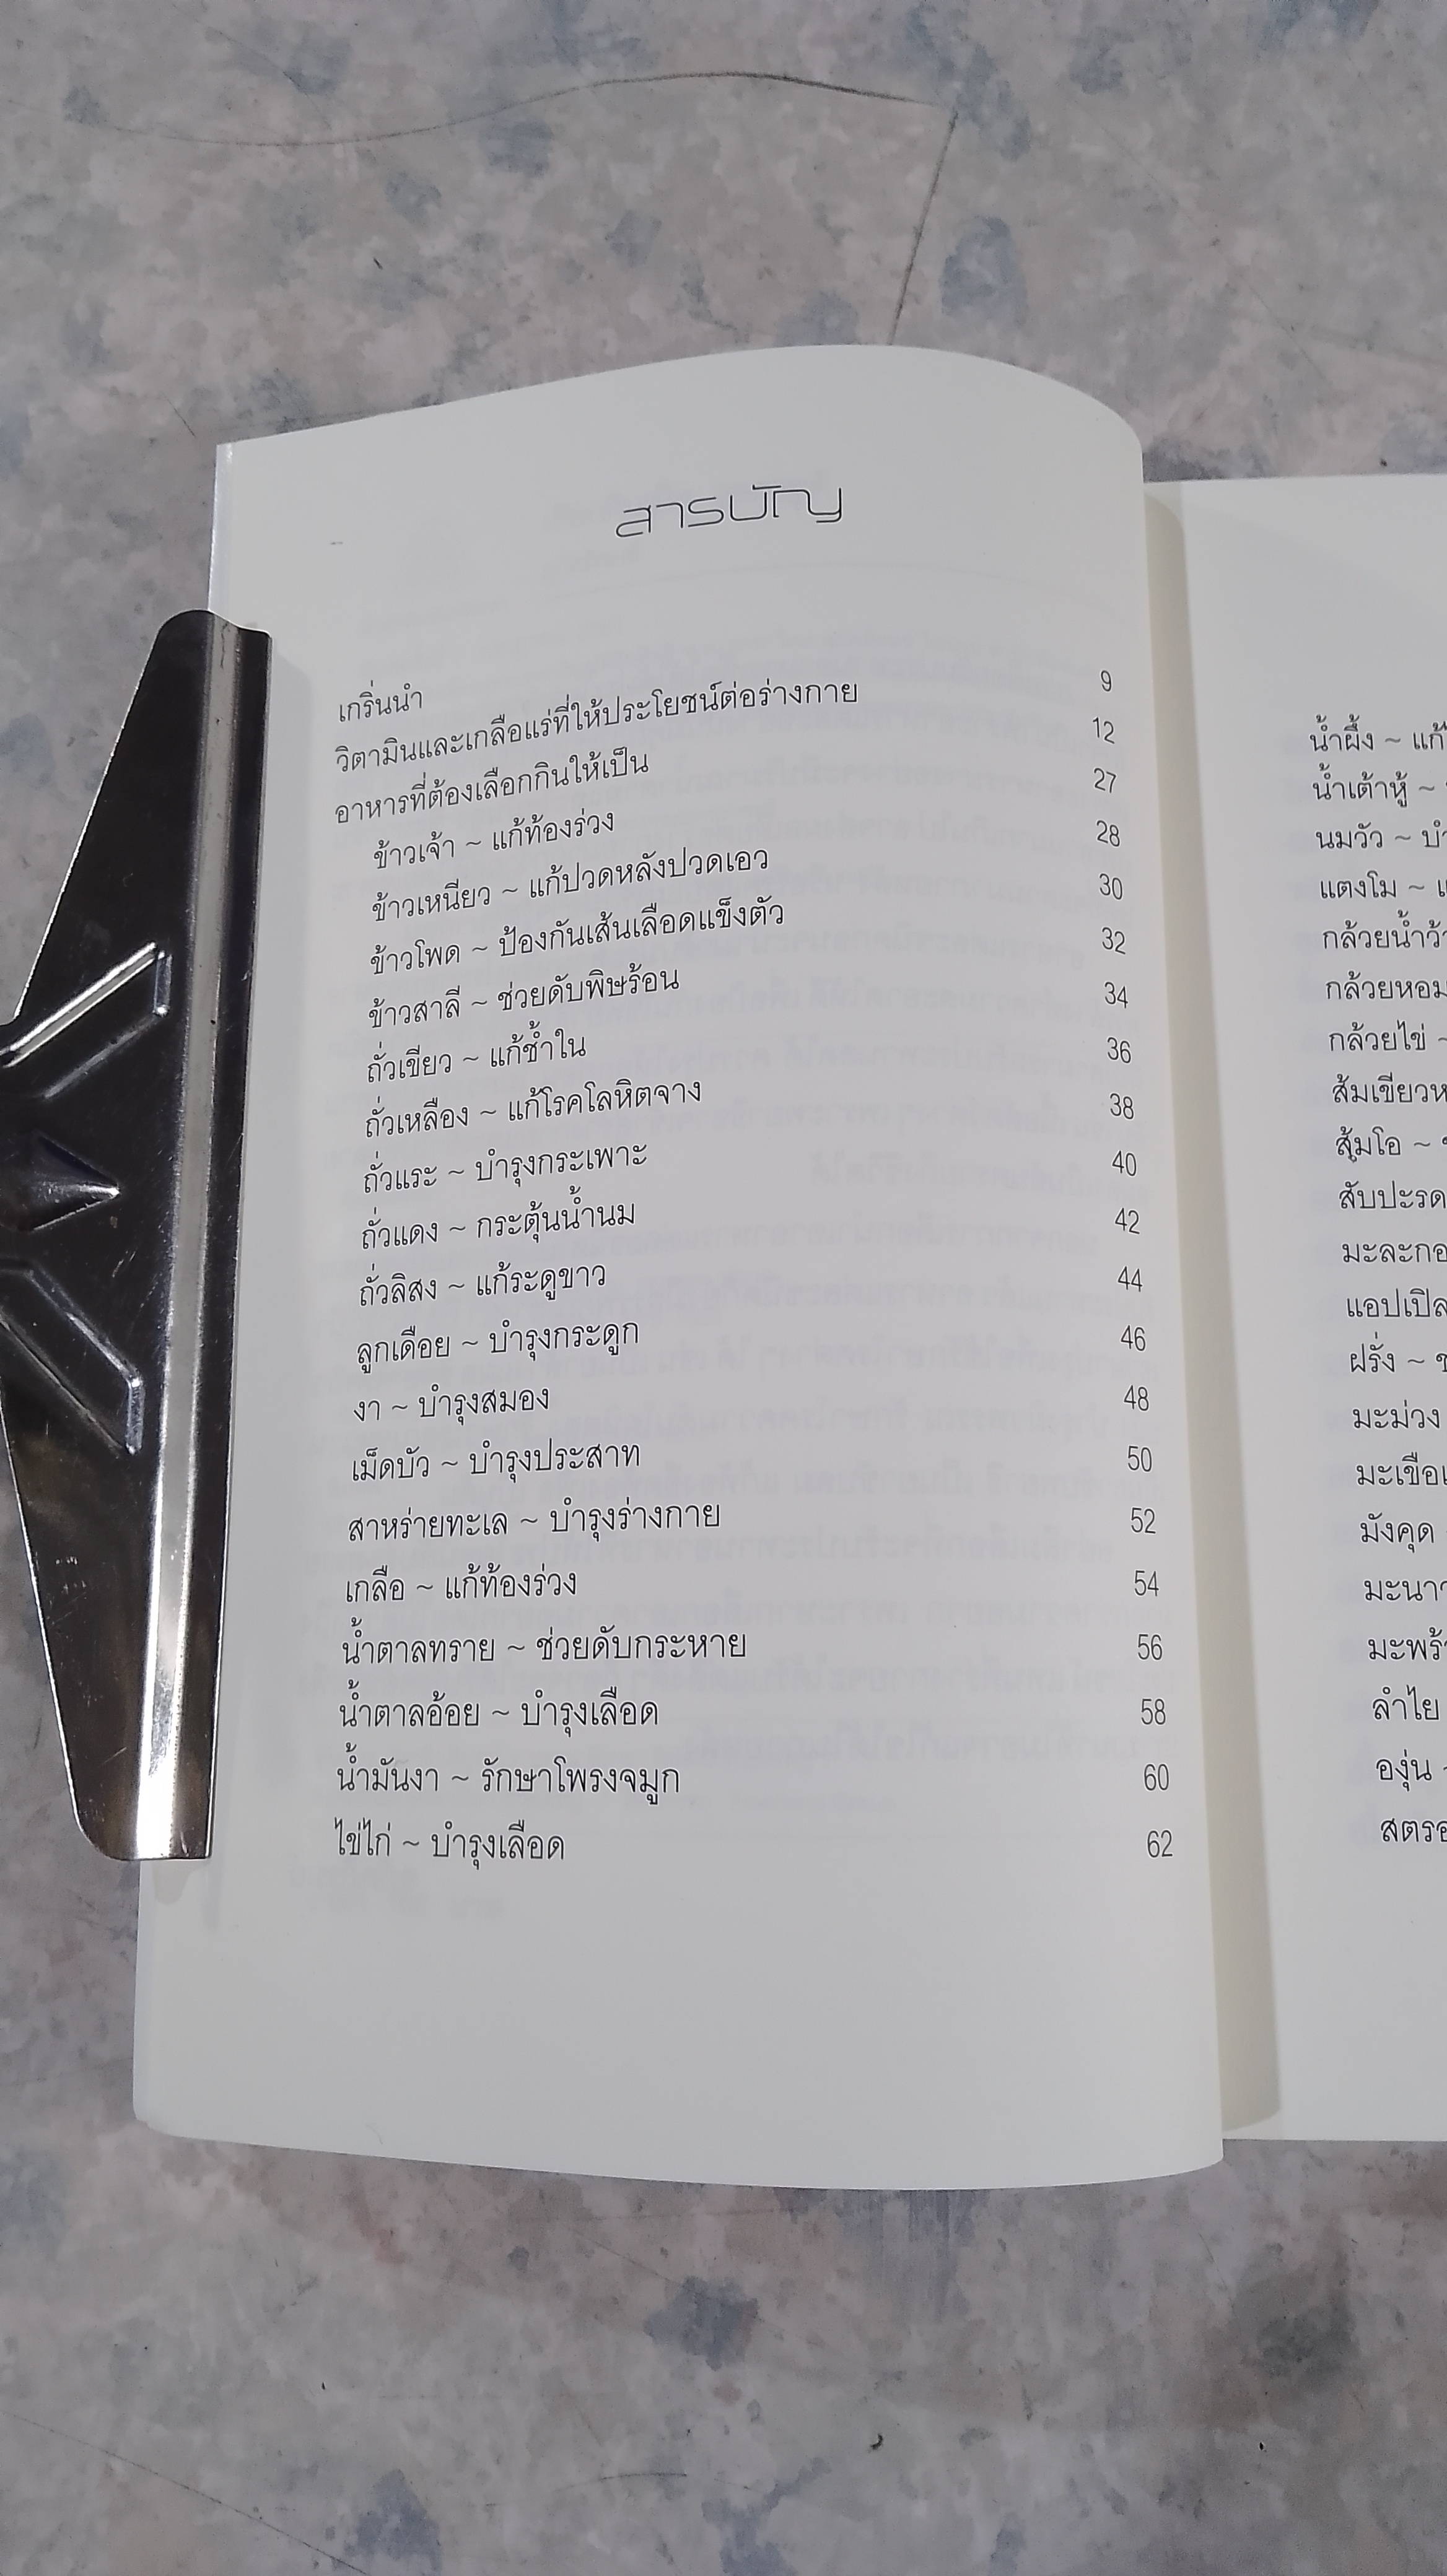 สารบัญ
เกริ่นนำ 9
วิตามินและเกลือแร่ที่ให้ประโยชน์ต่อร่างกาย 12
อาหารที่ต้องเลือกกินให้เป็น 27
ข้าวเจ้า ~ แก้ท้องร่วง 28
ข้าวเหนียว ~ แก้ปวดหลังปวดเอว 30
ข้าวโพด ~ ป้องกันเส้นเลือดแข็งตัว 32
ข้าวสาลี ~ ช่วยดับพิษร้อน 34
ถั่วเขียว ~ แก้ช้ำใน 36
ถั่วเหลือง ~ แก้โรคโลหิตจาง 38
ถั่วแระ ~ บำรุงกระเพาะ 40
ถั่วแดง ~ กระตุ้นน้ำนม 42
ถั่วลิสง ~ แก้ระดูขาว 44
ลูกเดือย ~ บำรุงกระดูก 46
งา ~ บำรุงสมอง 48
เม็ดบัว ~ บำรุงประสาท 50
สาหร่ายทะเล ~ บำรุงร่างกาย 52
เกลือ ~ แก้ท้องร่วง 54
น้ำตาลทราย ~ ช่วยดับกระหาย 56
น้ำตาลอ้อย ~ บำรุงเลือด 58
น้ำมันงา ~ รักษาโพรงจมูก 60
ไข่ไก่ ~ บำรุงเลือด 62
น้ำผึ้ง ~ แก้
น้ำเต้าหู้ ~
นมวัว ~
แตงโม ~
กล้วยน้ำว้
กล้วยหอม
กล้วยไข่ ~
ส้มเขียวห
ส้มโอ ~
สับปะรด
มะละกอ
แอปเปิล
ฝรั่ง ~
มะม่วง
มะเขือ
มังคุด
มะนา
มะพร้
ลำไย
องุ่น ~
สตรอ